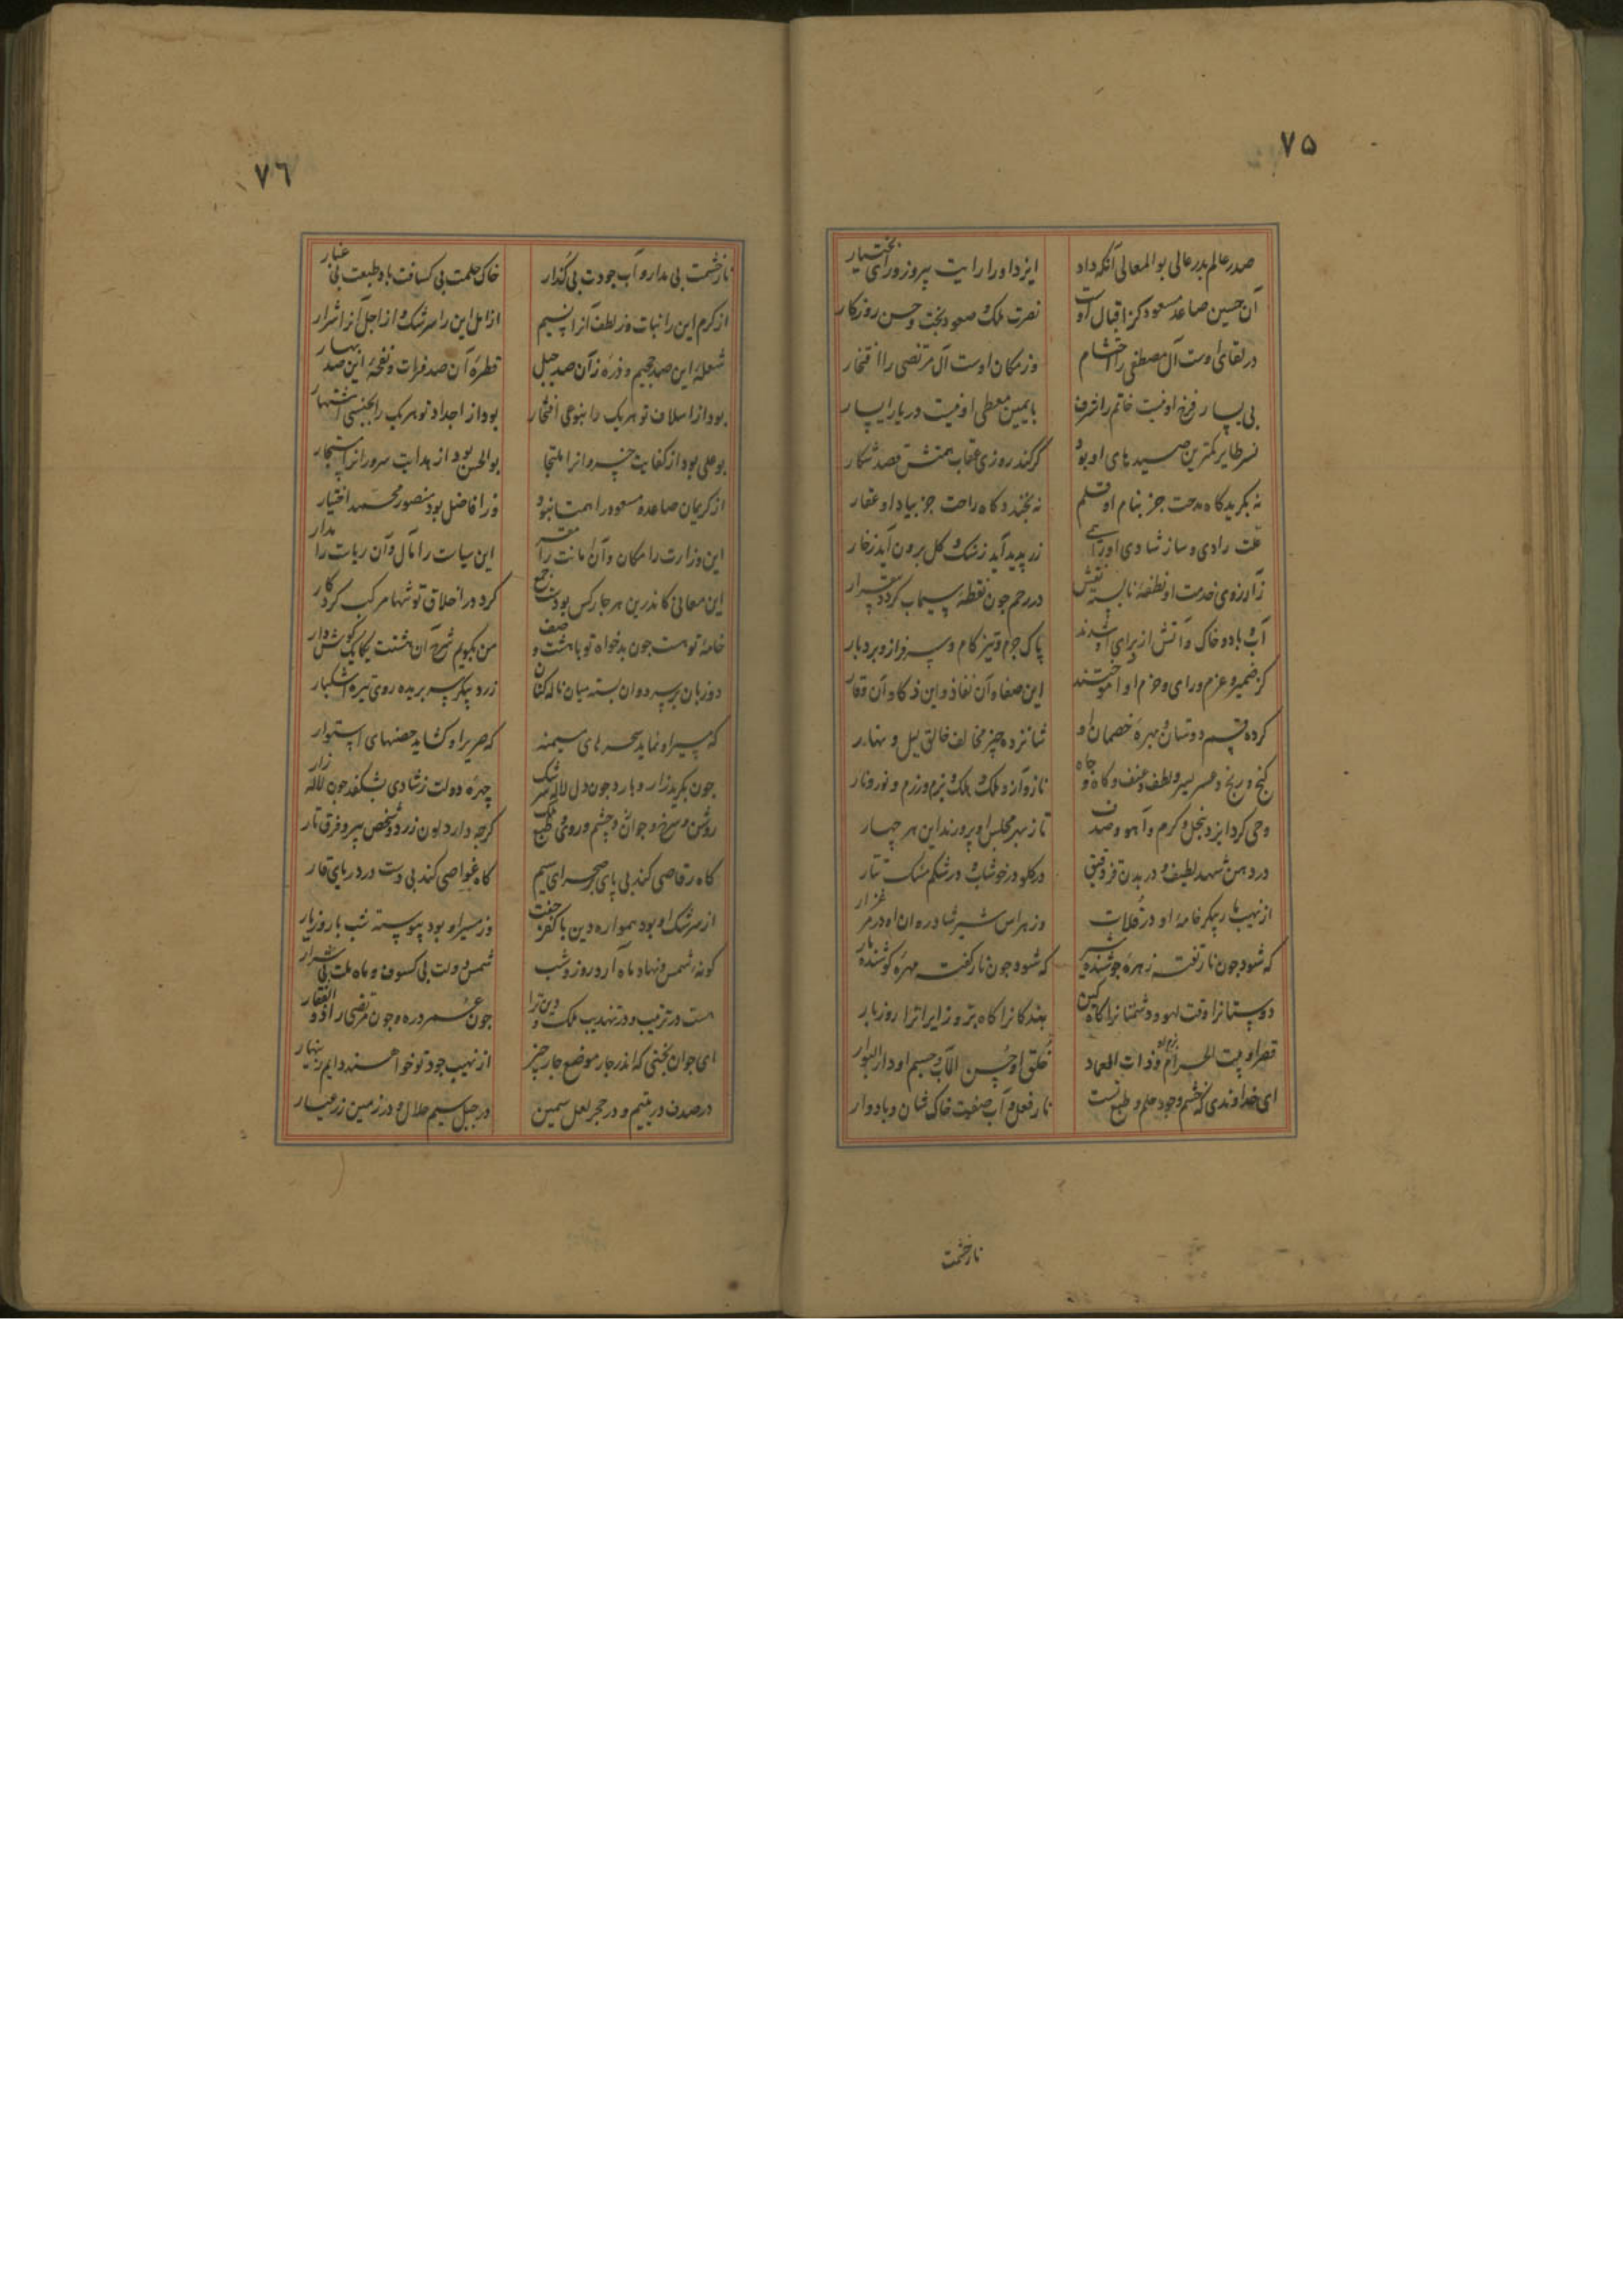 ۷۵
صدر عالم بدر عالی بوالمعالی آنکه داد ایزد او را رایت پیروز و رای بختیار
آن حسین صاعد مسعود کز اقبال اوست نصرت ملک و صعود بخت و حسن روزکار
در لقای اوست آل مصطفی را احتشام وز مکان اوست آل مرتضی را افتخار
بی یسار فرخ او نیست خاتم را شرف با یمین معطی او نیست دریا را یسار
نسر طایر کمترین صید های او بود گر کند روزی عقاب همتش قصد شکار
نه بگرید کاه مدحت جز بنام او قلم نه بخندد کاه راحت جز بیاد او عقار
زر پدید آید ز سنک و کل برون آید ز خار
زآرزوی خدمت او نطفهٔ نابسته نقش در رحم چون نقطهٔ سیماب کردد بیقرار
آب و باد و خاک و آتش از برای او شدند پاک جرم و تیز کام و سرفراز و بردبار
کز ضمیر و عزم و رای و حزم او آموختند این صفا و آن نفاذ و این ذکا و آن وقار
کرده قسم دوستان و بهرهٔ خصمان او شانزده چیز مخالف خالق لیل و نهار
کنج و رنج و عسر و یسر و لطف و عنف و کاه و جاه ناز و آز و ملک و هلک و بزم و رزم و نور و نار
وحی کرد ایزد بنحل و کرم و آهو و صدف تا ز بهر مجلس او پرورند این هر چهار
در دهن شهد لطیف و در بدن در کلو در خوشاب و در شکم مشک تتار
از نهیب مار پیکر خامهٔ او در فلات وز هراس شیر شادروان او در مرغزار
که شود چون نار تفته زهرهٔ جوشنده شیر که شود چون نار کفته مهرهٔ کوشنده مار
دوستانرا وقت لهو و دشمنانرا کاه کین بندکانرا کاه بزّ و زایرانرا روز بار
قصر او بیت الحرام و بزم او ذات العماد خلق او حسن المآب و خشم او دار البوار
ای خداوندی که خشم و جود و حلم و طبع تست نار فعل و آب صفوت خاک شان و بادوار
نار خشمت
۷۶
نار خشمت بی مدار و آب جودت بی کُدار خاک حلمت بی کسافت باد طبعت بی غبار
از کرم این را نبات و ز لطف آنرا نسیم از امل این را سرشک و از اجل آنرا شرار
شعلهٔ این صد جحیم و ذرهٔ زآن صد جبل قطرهٔ آن صد فرات و نفحهٔ این صد بهار
بود از اسلاف تو هر یک را بنوعی افتخار بود از اجداد تو هر یک را بجنسی اشتهار
بوعلی بود از کفایت خسروانرا ملتجا بوالحسن بود از هدایت سرورانرا مستجار
از کریمان صاعد و مسعود را همتا نبود وز افاضل بود منصور محمد اختیار
این وزارت را مکان و آن امانت را مقر این سیاست را مآل و آن ریاست را مدار
این معانی کاندرین هر چار کس بودست جمع کرد در اخلاق تو تنها مرکب کردکار
خامهٔ تو هست چون بدخواه تو با هشت وصف من بکویم شرح آن هشت یکایک کوش دار
دو زبان و سردوان بسته میان ناله کنان زرد پیکر سر بریده روی تیره اشکبار
که مسیر او نماید سحر های که صریر او کشاید حصنهای استوار
چون بگرید زار و بارد چون دل لاله سرشک چهرهٔ دولت ز شادی بشکفد چون لاله زار
روشن و سرخ و جوان و چشم و روی و طبع ملک کرچه دارد لون زرد و شخص پیر و فرق تار
کاه رقاصی کند بی پای بر صحرای سیم کاه غواصی کند بی دست در دریای قار
از سرشک او بود همواره دین با کفر جفت وز مسیر او بود پیوسته شب با روز یار
کونهٔ شمس و نهاد ماه آرد روز و شب شمس دولت بی کسوف و ماه ملت بی سرار
هست در ترتیب و در تهذیب ملک و دین ترا چون عمر دره و چون مرتضی را ذو الفقار
ای جوان بختی که اندر چار موضع چار چیز از نهیب جود تو خواهند دایم زینهار
در صدف در یتیم و در حجر لعل ثمین در جبل سیم حلال و در زمین زر عیار